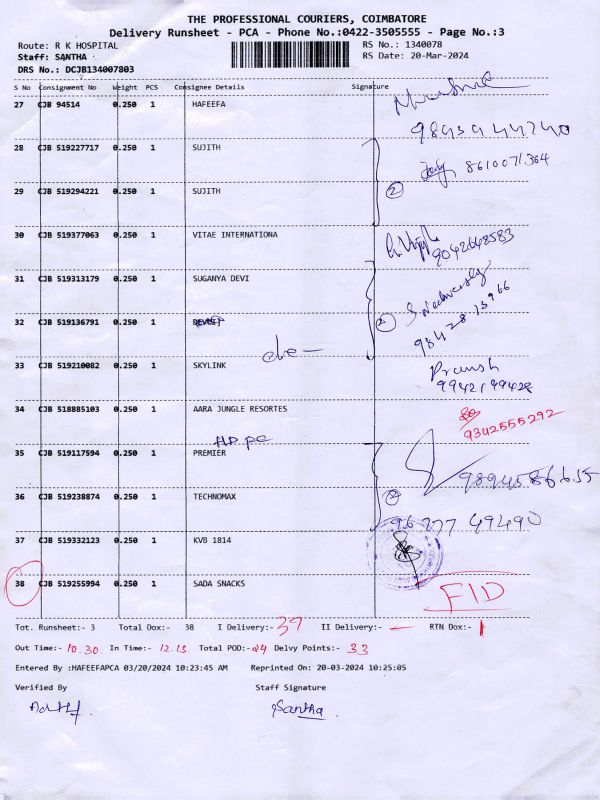 THE PROFESSIONAL COURIERS, COIMBATORE
Delivery Runsheet - PCA - Phone No.:0422-3505555 - Page No.:3
Route: R K HOSPITAL RS No.: 1340078
Staff: SANTHA RS Date: 20-Mar-2024
DRS No.: DCJB134007803
S No Consignment No Weight PCS Consignee Details Signature
27 CJB 94514 0.250 1 HAFEEFA
28 CJB 519227717 0.250 1 SUJITH
8610071364
2
29 CJB 519294221 0.250 1 SUJITH
30 CJB 519377063 0.250 1 VITAE INTERNATIONA
9042648583
31 CJB 519313179 0.250 1 SUGANYA DEVI
32 CJB 519136791 0.250 1
33 CJB 519210082 0.250 1 SKYLINK
9942199428
34 CJB 518885103 0.250 1 AARA JUNGLE RESORTES
9342555292
35 CJB 519117594 0.250 1 PREMIER
36 CJB 519238874 0.250 1 TECHNOMAX
96777 49490
37 CJB 519332123 0.250 1 KVB 1814
38 CJB 519255994 0.250 1 SADA SNACKS FID
Tot. Runsheet:- 3 Total Dox:- 38 I Delivery:- 37 II Delivery:- — RTN Dox:- 1
Out Time:- 10.30 In Time:- 12.13 Total POD:- 24 Delvy Points:- 33
Entered By :HAFEEFAPCA 03/20/2024 10:23:45 AM Reprinted On: 20-03-2024 10:25:05
Verified By Staff Signature
Santha